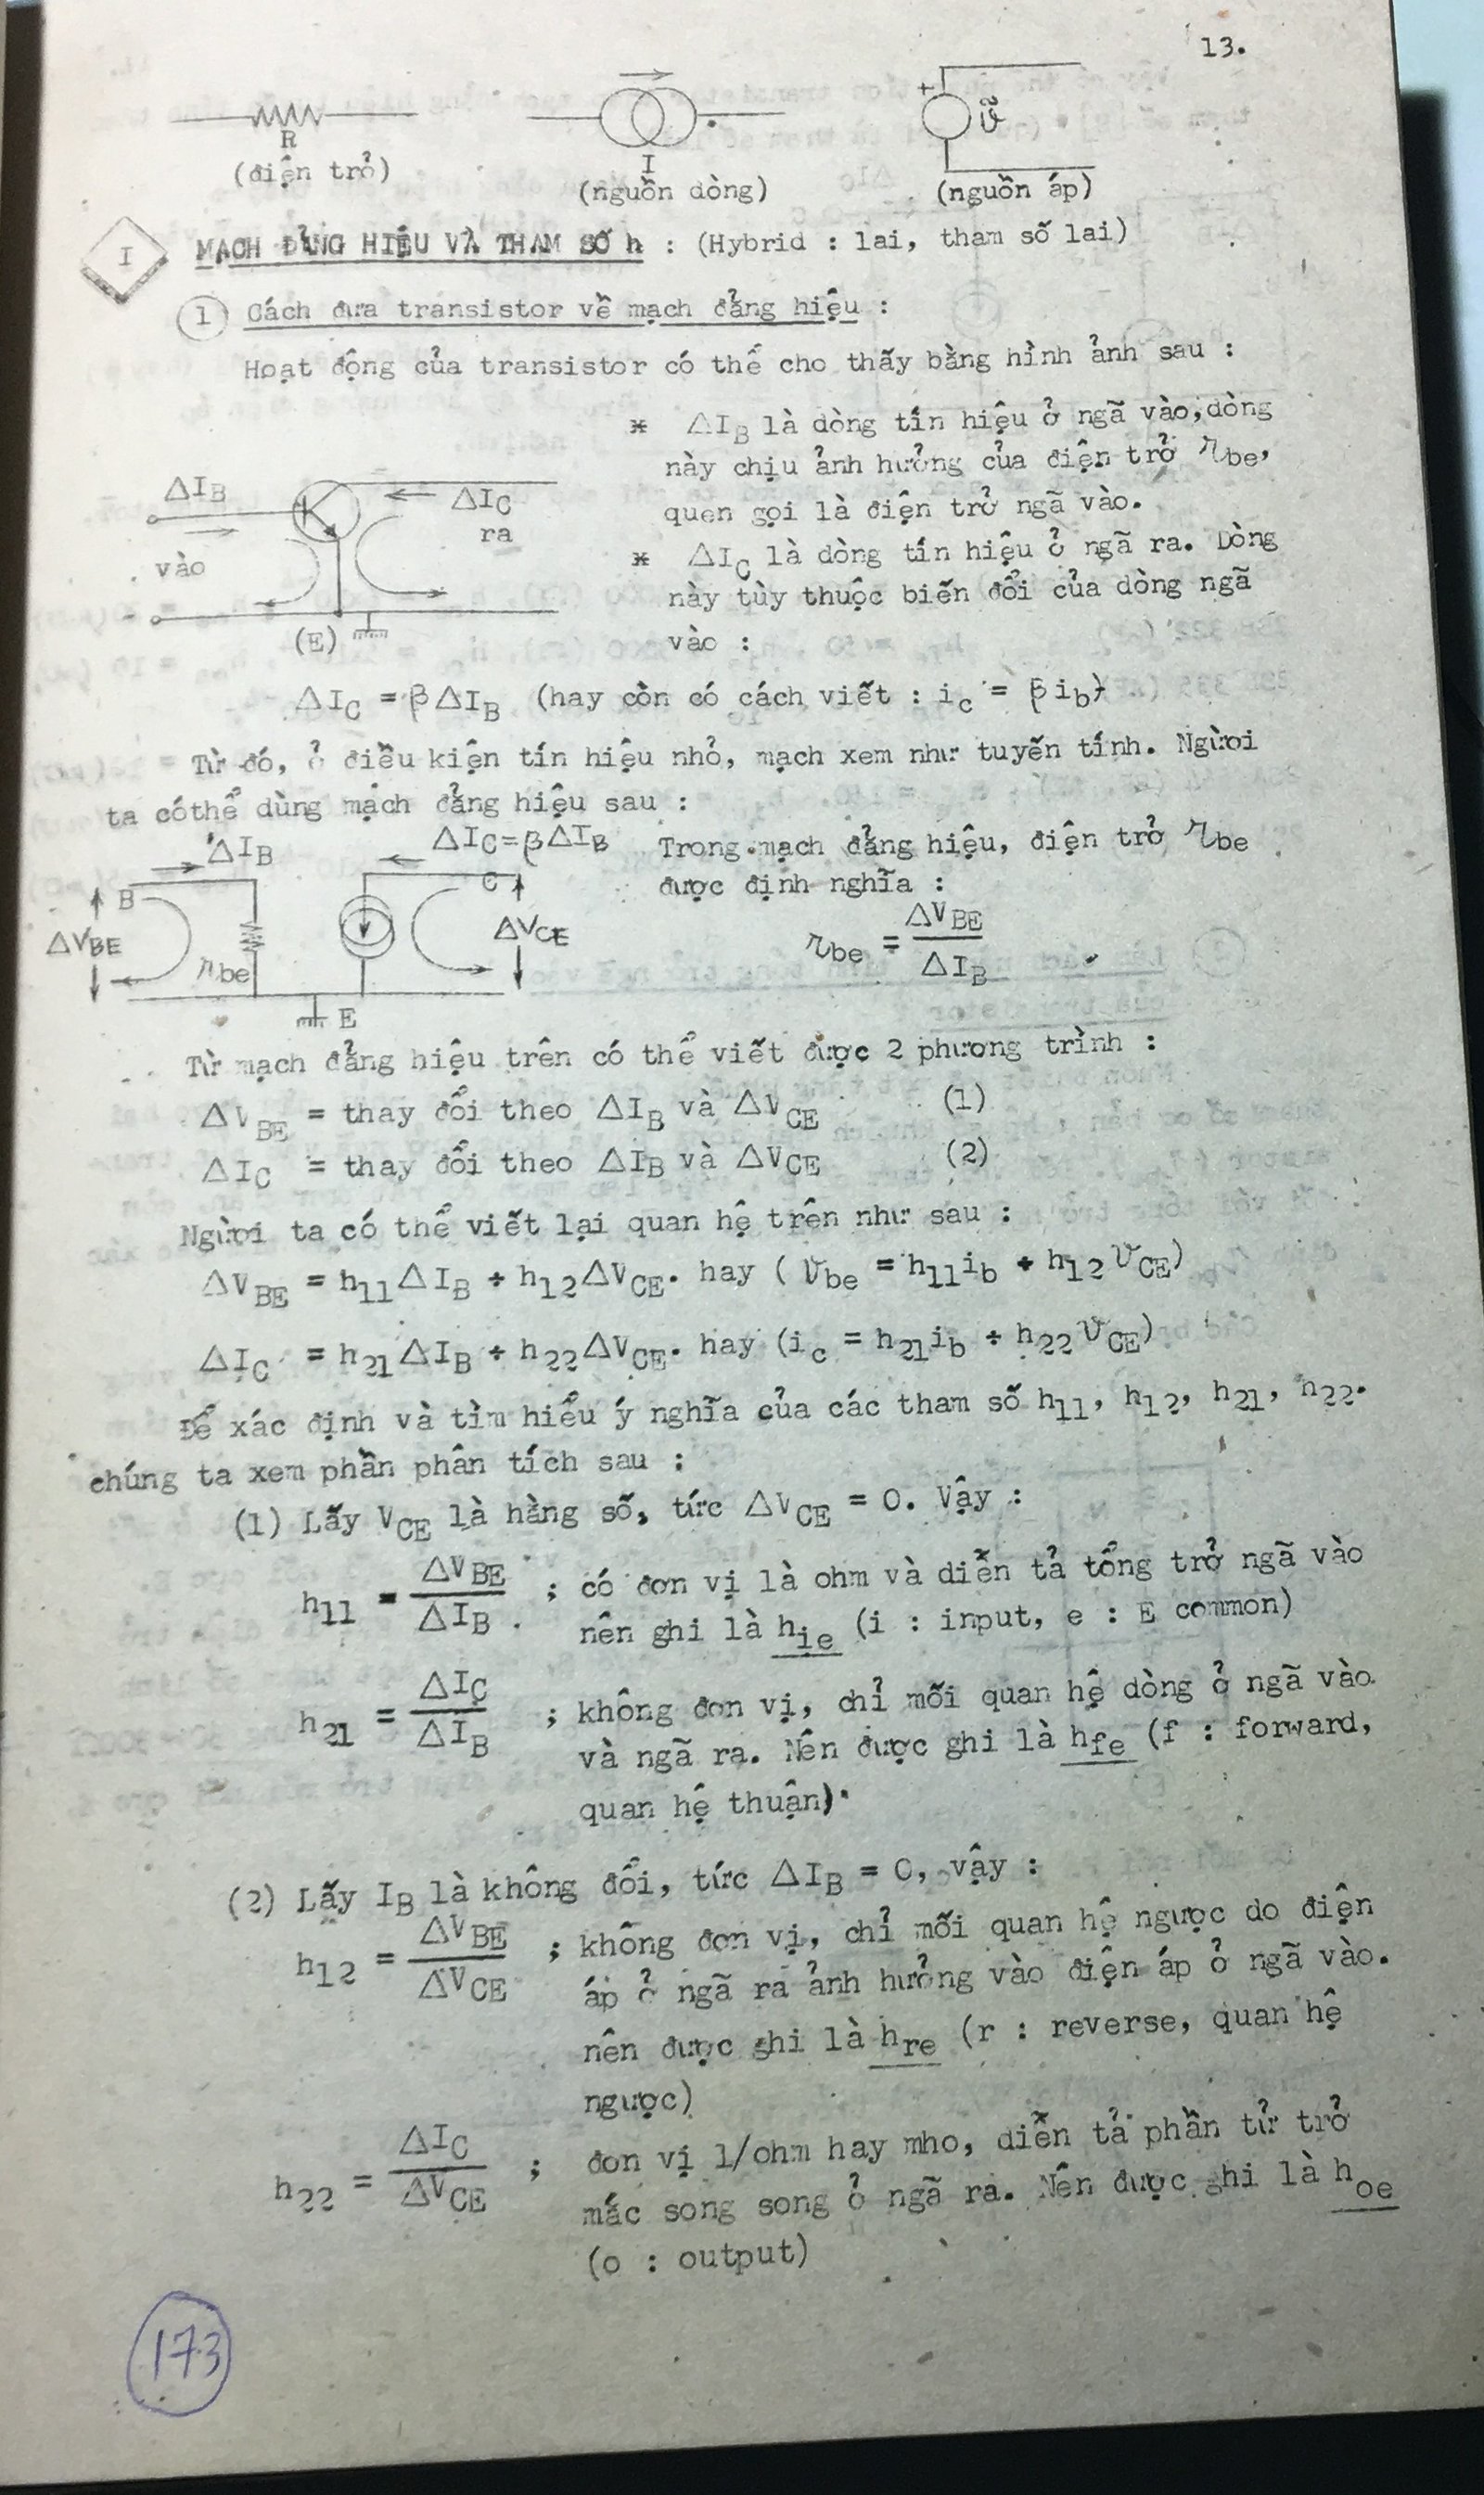 13.
R
(điện trở)
I
(nguồn dòng)
+
ṽ
(nguồn áp)
I
MẠCH ĐẲNG HIỆU VÀ THAM SỐ h : (Hybrid : lai, tham số lai)
1 Cách đưa transistor về mạch đẳng hiệu :
Hoạt động của transistor có thể cho thấy bằng hình ảnh sau :
* ΔI_B là dòng tín hiệu ở ngã vào, dòng
này chịu ảnh hưởng của điện trở r_be,
quen gọi là điện trở ngã vào.
* ΔI_C là dòng tín hiệu ở ngã ra. Dòng
này tùy thuộc biến đổi của dòng ngã
vào :
ΔI_B
ΔI_C
ra
vào
(E)
ΔI_C = βΔI_B (hay còn có cách viết : i_c = βi_b)
Từ đó, ở điều kiện tín hiệu nhỏ, mạch xem như tuyến tính. Người
ta cóthể dùng mạch đẳng hiệu sau :
ΔI_B
ΔI_C=βΔI_B
B
C
ΔV_BE
r_be
ΔV_CE
E
Trong mạch đẳng hiệu, điện trở r_be
được định nghĩa :
r_be = ΔV_BE / ΔI_B
Từ mạch đẳng hiệu trên có thể viết được 2 phương trình :
ΔV_BE = thay đổi theo ΔI_B và ΔV_CE (1)
ΔI_C = thay đổi theo ΔI_B và ΔV_CE (2)
Người ta có thể viết lại quan hệ trên như sau :
ΔV_BE = h_11ΔI_B + h_12ΔV_CE. hay (v_be = h_11i_b + h_12v_CE)
ΔI_C = h_21ΔI_B + h_22ΔV_CE. hay (i_c = h_21i_b + h_22v_CE)
Để xác định và tìm hiểu ý nghĩa của các tham số h_11, h_12, h_21, h_22.
chúng ta xem phần phân tích sau :
(1) Lấy V_CE là hằng số, tức ΔV_CE = 0. Vậy :
h_11 = ΔV_BE / ΔI_B ; có đơn vị là ohm và diễn tả tổng trở ngã vào
nên ghi là h_ie (i : input, e : E common)
h_21 = ΔI_C / ΔI_B ; không đơn vị, chỉ mối quan hệ dòng ở ngã vào
và ngã ra. Nên được ghi là h_fe (f : forward,
quan hệ thuận).
(2) Lấy I_B là không đổi, tức ΔI_B = 0, vậy :
h_12 = ΔV_BE / ΔV_CE ; không đơn vị, chỉ mối quan hệ ngược do điện
áp ở ngã ra ảnh hưởng vào điện áp ở ngã vào.
nên được ghi là h_re (r : reverse, quan hệ
ngược)
h_22 = ΔI_C / ΔV_CE ; đơn vị 1/ohm hay mho, diễn tả phần tử trở
mắc song song ở ngã ra. Nên được ghi là h_oe
(o : output)
173